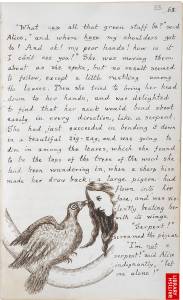 63.
"What can all that green stuff be?" said
Alice, "and where have my shoulders got
to? And oh! my poor hands! how is it
I can't see you?" She was moving them
about as she spoke, but no result seemed
to follow, except a little rustling among
the leaves. Then she tried to bring her head
down to her hands, and was delighted
to find that her neck would bend about
easily in every direction, like a serpent.
She had just succeeded in bending it down
in a beautiful zig-zag, and was going to
dive in among the leaves, which she found
to be the tops of the trees of the wood she
had been wandering in, when a sharp hiss
made her draw back: a large pigeon had
flown into her
face, and was vio-
lently beating her
with its wings.
"Serpent!"
screamed the pigeon.
"I'm not a
serpent!" said Alice
indignantly, "let
me alone!"
BRITISH
LIBRARY